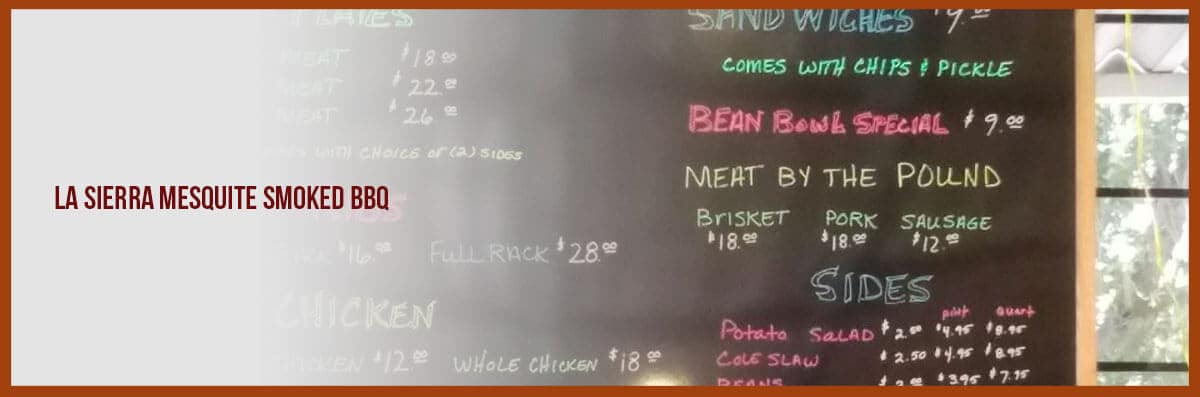 PLATES
MEAT $18.00
MEAT $22.00
MEAT $26.00
WITH CHOICE OF (2) SIDES
LA SIERRA MESQUITE SMOKED BBQ
RIBS
$16.00 FULL RACK $28.00
CHICKEN
CHICKEN $12.00 WHOLE CHICKEN $18.00
SANDWICHES $9.00
COMES WITH CHIPS & PICKLE
BEAN BOWL SPECIAL $9.00
MEAT BY THE POUND
BRISKET PORK SAUSAGE
$18.00 $18.00 $12.00
SIDES
pint quart
Potato SALAD $2.50 $4.95 $8.95
COLE SLAW $2.50 $4.95 $8.95
BEANS $3.95 $7.75